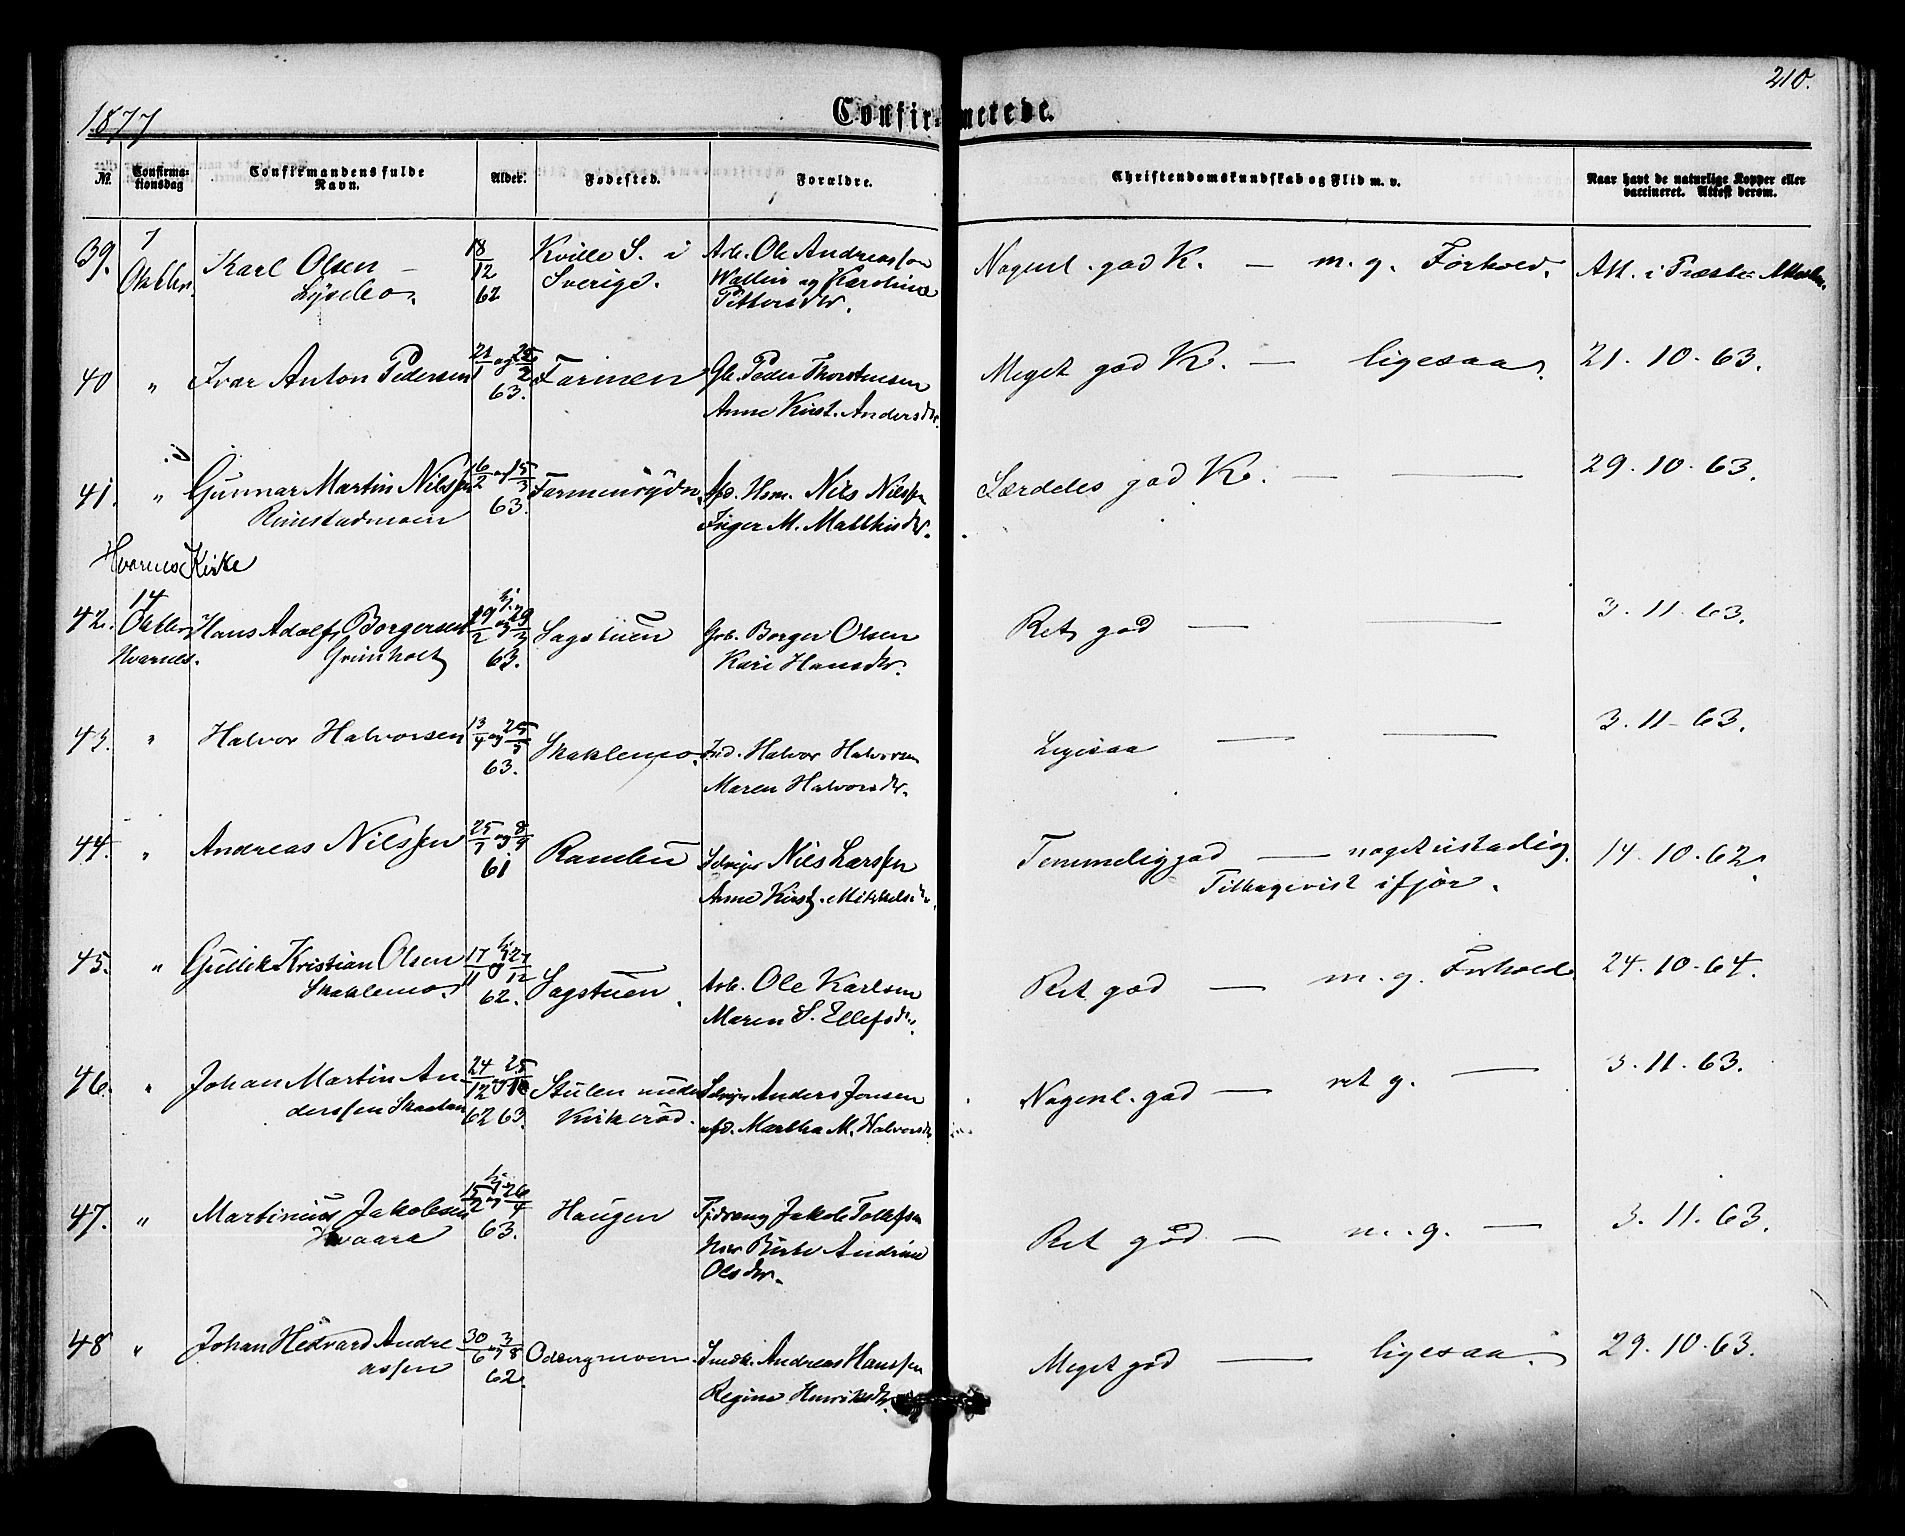 210.
1877
Confirmerede.
№.
Confirma-
tionsdag
Confirmandens fulde
Navn.
Alder.
Fødested.
Forældre.
Christendomskundskab og Flid m. v.
Naar havt de naturlige Kopper eller
vaccineret. Attest derom.
39. 7 Oktbr. Karl Olsen 18/12 62 Kville S. i Sverige. Arb. Ole Andreassen
Wallin og Karoline
Pettersdtr.
Nogenl. god K. — m. g. Forhold. Att. i Præste
40 " Ivar Anton Pedersen 21/1 og 25/2 63. Farmen Gb. Peder Thorstensen
Anne Kirst. Andersdtr.
Meget god K. — ligesaa. 21. 10. 63.
41. " Gunnar Martin Nilssen
Rimstadmoen 16/2 og 15/3 63. Farmensydn. Afd. Hsm. Nils Nilssen
Inger M. Mathisdtr.
Særdeles god K. — — 29. 10. 63.
Hvarnes Kirke
42. 14 Oktbr. Hvarnes. Hans Adolf Borgersen
Grimholt 63. Sagstuen Grb. Borger Olsen
Kari Hansdtr.
Ret god — — 3. 11. 63.
43. " Halvor Halvorsen 13/4 og 25/5 63. Skaklemo. Ind. Halvor Halvorsen
Maren Halvorsdtr.
Ligesaa — — 3. 11. 63.
44. " Andreas Nilssen 61 Rambu Selveier Nils Larssen
Anne Kirst. Mikkelsdtr.
Temmelig god — noget ustadig. 14. 10. 62.
Tilbagevist ifjor.
45. " Gullik Kristian Olsen
Skaklemo. 17/11 og 27/12 62. Sagstuen. Arb. Ole Karlsen
Maren S. Ellefsdtr.
Ret god — m. g. Forhold 24. 10. 64.
46. " Johan Martin An-
derssen 24/12 62 63. Stulen under
Kirkerød. Selveier Anders Jonsen
afd. Martha M. Halvorsdtr.
Nogenl. god — ret g. — 3. 11. 63.
47. " Martinius Jakobsen
Hvaara 15/2 og 26/4 63. Haugen Jakob Tollefsen
Birte Andrine
Olsdtr.
Ret god — m. g. — 3. 11. 63.
48 " Johan Hedvard Andre
assen 30/6 og 3/8 62. Odbergmoen. Smedk. Andreas Hanssen
Regine Henriksdtr.
Meget god — ligesaa. 29. 10. 63.